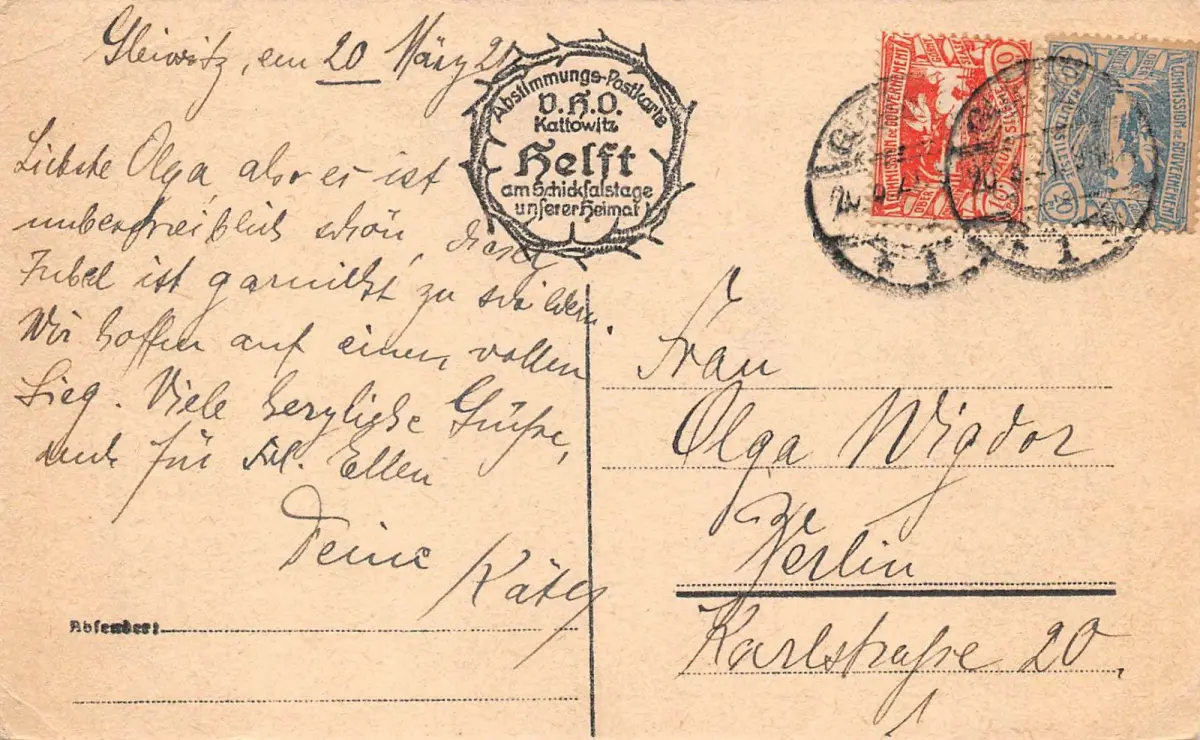 Gleiwitz, am 20 März 21
Abstimmungs-Postkarte
V.H.O.
Kattowitz
Helft
am Schicksalstage
unserer Heimat!
Liebste Olga, also es ist
unbeschreiblich schön, dieser
Jubel ist garnicht zu schildern.
Wir hoffen auf einen vollen
Sieg. Viele herzliche Grüße,
auch für Frl. Ellen
Deine
Käte
Absender:
COMMISSION DE GOUVERNEMENT
COMMISSION DE GOUVERNEMENT
HAUTE SILESIE
20
Frau
Olga Wigdor
Berlin
Karlstraße 20.